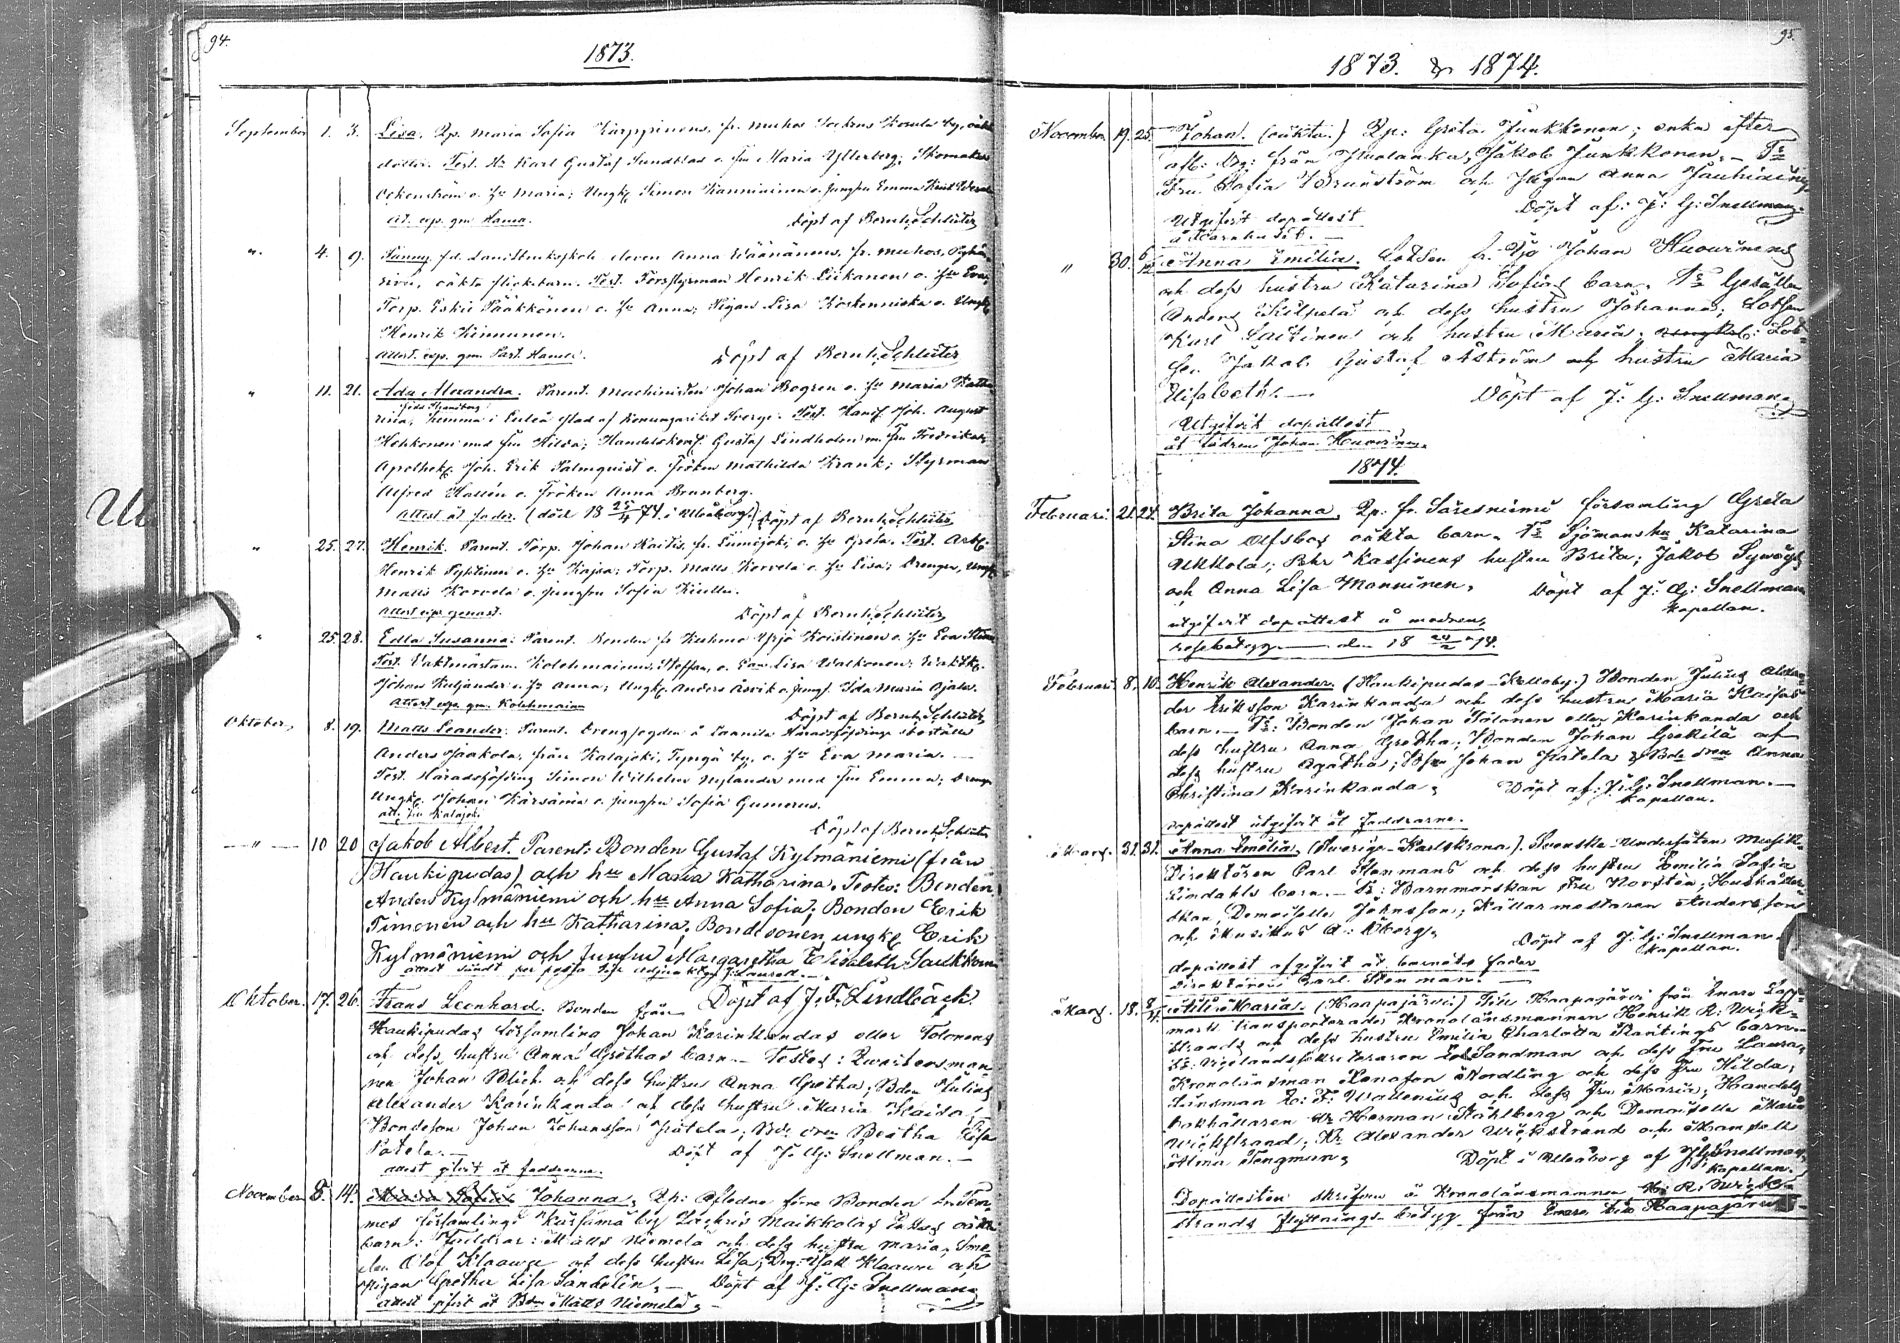 94.
1873.
September 1. 3. Lisa. Qp. Maria Sofia Karppinens, fr. Muhos Sockens by, oäkta
dotter. Test. Hr Karl Gustaf Sundblad o. fru Maria Ytterberg; Skomakar
Ockenström o. hu Maria; Ungk. Simon Kanniainen o. jungfru Emma
At. exp. gm. Hanna. Döpt af Bernh. Schlüter
" 4. 9. Fanny. fd. Landtbruksskole eleven Anna Väänänens, fr. Muhos,
oäkta flickebarn. Test. Forstyrman Henrik Liikanen o. hu Eva,
Torp. Eskil Pääkkönen o. hu Anna; Pigan Lisa Koskenniska o. Ungk.
Henrik Kimunen.
Attest. exp. gm. Past. Döpt af Bernh. Schlüter
" 11. 21. Ada Alexandra. Parent. Machinisten Johan Bogren o. hu Maria Katha-
född Strandberg
rina, hemma i Luleå Stad af Konungariket Sverge. Test. Handl. Joh. August
Hohkonen med fru Hilda; Handelskonf. Gustaf Lindholm m. fru Fredrika;
Apothek. Joh. Erik Palmquist o. Fröken Mathilda Krank; Styrman
Alfred Hallén o. Fröken Anna Brunberg.
Attest åt fader. (död 18 25/4 74. i Uleåborg.) Döpt af Bernh. Schlüter
" 25. 27. Henrik. Parent. Torp. Johan Raitis, fr. Limijoki, o. hu Greta. Test. Arb.
Henrik o. hu Kajsa; Torp. Matts Korvola o. hu Lisa; Drengen, Ungk.
Matts Korvola o. jungfru Sofia
Attest exp. genast. Döpt af Bernh. Schlüter
" 25. 28. Edla Susanna. Parent. Bonden fr Kuhmo Yrjö o. hu Eva
Test. Vaktmästarn. Kolehmainen, Steffan, o. Lisa Walkonen;
Johan Kuljander o. hu Anna; Ungk. Anders Åsvik o. Jungf. Ida Maria
Attest exp. gm. Kolehmain Döpt af Bernh. Schlüter
Oktober, 8. 19. Matts Leander. Parent. Drengfogden å Lannila Häradshöfdinge boställe
Anders Jaakola, från Kalajoki, Tyngä by, o. hu Eva Maria.
Test. Häradshöfding Simon Wilhelm Nylander med fru Emma; Dreng.
Ungk. Johan Kärsämä o. jungfru Sofia Gumerus.
att. fr. Kalajoki Döpt af Bernh. Schlüter
" 10 20 Jakob Albert. Parent: Bonden Gustaf Kylmäniemi (från
Haukipudas) och hu Maria Katharina. Testes: Bonden
Anders Kylmäniemi och hu Anna Sofia; Bonden Erik
Timonen och hu Katharina; Bondesonen, ungk. Erik
Kylmäniemi och Jungfru Margaretha Elisabeth Saukkonen
attest sändt per posta
Oktober. 17. 26. Frans Leonhard. Bonden från Döpt af J. F. Lindbäck
Haukipudas församling Johan Karinkandas eller Tolonens
och dess hustru Anna Grethas barn. — Testes:
nen Johan Blick och dess hustru Anna Gretha; Bden Julius
Alexander Karinkanda och dess hustru Maria Kaisa;
Bondeson Johan Johansson Patela; Bde dren Beatha Lisa
Patela. — Döpt af J. G: Snellman. —
attest gifvit åt faddrarne.
November 5. 14. Maria Sofia Johanna. Qp: Aflidne förre Bonden i Tem-
mes församlings Kärsämä by Zachris Maikkolas oäkta
barn. Faddrar: Matts Niemelä och dess hustru Maria; Sme-
den Olof Klaavu och dess hustru Lisa; Drg. Isak Klaavu och
Pigan Gretha Lisa Sandelin. — Döpt af J: G: Snellman
attest gifvit åt Bden Matts Niemelä. —
95.
1873. & 1874.
November 19. 25. Johan. (oäkta.) Qp: Greta Junkkonen; enka efter
afl: Drg: från Puolanka, Jakob Junkkonen. — Ts
Fru Sofia Brunström och Jägm Anna
Utgifvit dopattest Döpt af: J: G: Snellman.
å Barnhuset. —
" 30. 6/12 Anna Emilia. Lotsen fr. Ijo Johan Huovinens
och dess hustru Katarina Sofias barn. Ts Gesällen
Anders Kilpelä och dess hustru Johanna; Lotsen
Karl Laitinen och hustru Maria; Lot-
sen Jakob Gustaf Åström och hustru Maria
Elisabeth. — Döpt af J: G: Snellman.
Utgifvit dopattest
åt fadren Johan Huovinen.
1874.
Februari. 21. 24. Brita Johanna. Qp. fr. Säresniemi församling Greta
Stina Olfsbos oäkta barn. Ts Sjömanshu Katarina
Ukkola; Pehr Kassinens hustru Brita; Jakob
och Anna Lisa Manninen. Döpt af J: G: Snellman
kapellan.
utgifvit dopattest å modren,
resebetyg den 18 24/2 74.
Februari 8. 10. Henrik Alexander. (Haukipudas – Kello by.) Bonden Julius Alexan-
der Eriksson Karinkanda och dess hustru Maria Kaisas
barn. — Ts: Bonden Johan Tolonen eller Karinkanda och
dess hustru Anna Gretha; Bonden Johan Grekilä och
dess hustru Agatha; Bson Johan Patela & Bde dren Anna
Christina Karinkanda. Döpt af: J: G: Snellman. —
kapellan.
Dopattest utgifvit åt faddrarne.
Mars. 31. 31. Anna Emilia. (Sverige – Karlskrona). Svenske Undersåten Musik-
Direktören Carl Stenmans och dess hustru Emilia Sofia
Lindahls barn. — Ts: Barnmorskan Fru Norstén; Hushåller-
skan, Demoiselle Johnsson; Källarmestaren Andersson
och Musikus A: Öberg. Döpt af J: G: Snellman
kapellan.
dopattest afgifvit åt barnets fader
Direktören Carl Stenman. —
Mars. 18. Aili Maria. (Haapajärvi) Till Haapajärvi från Enare Lapp-
mark transporterade Kronolänsmannen Henrik R: Wick-
strands och dess hustru Emilia Charlotta Rantings barn.
Ts: Sandman och dess Fru Laura,
Kronolänsman Jonafan Nordling och dess fru Hilda;
Länsman L: F: Wallenius och dess fru Maria; Handels-
bokhållaren Hr Herman Ståhlberg och Demoiselle Maria
Wickstrand; Hr Alexander Wickstrand och Mamsell
Alma Tengman. Döpt i Uleåborg af J: G: Snellman
kapellan.
Dopattesten skrifven å Kronolänsmannen H. R. Wick-
strands flyttnings-betyg från Enare till Haapajärvi